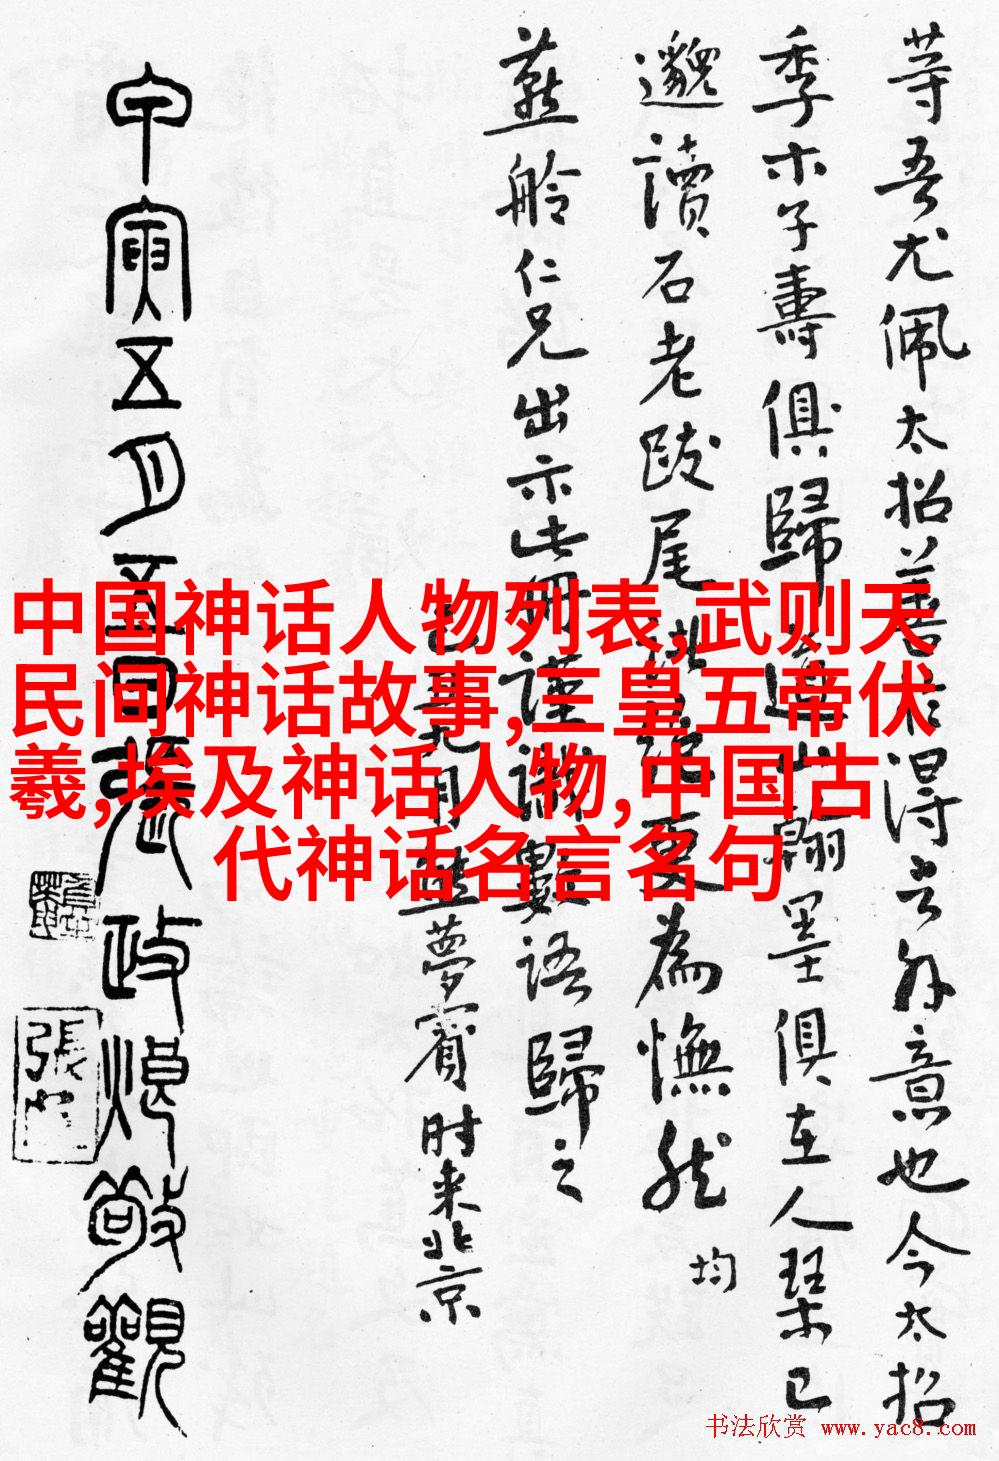 等吾尤佩太招善於得言外意也今太招
季木子壽俱歸道山翰墨俱在人琴已
邈讀石老跋尾 更為憮然 均
燕舲仁兄出示此冊謹識數語歸之
夢賓时来北京
甲寅五月 政烺敬觀
張
中国神话人物列表,武则天
民间神话故事,三皇五帝伏
羲,埃及神话人物,中国古
代神话名言名句
书法欣赏 www.yac8.com